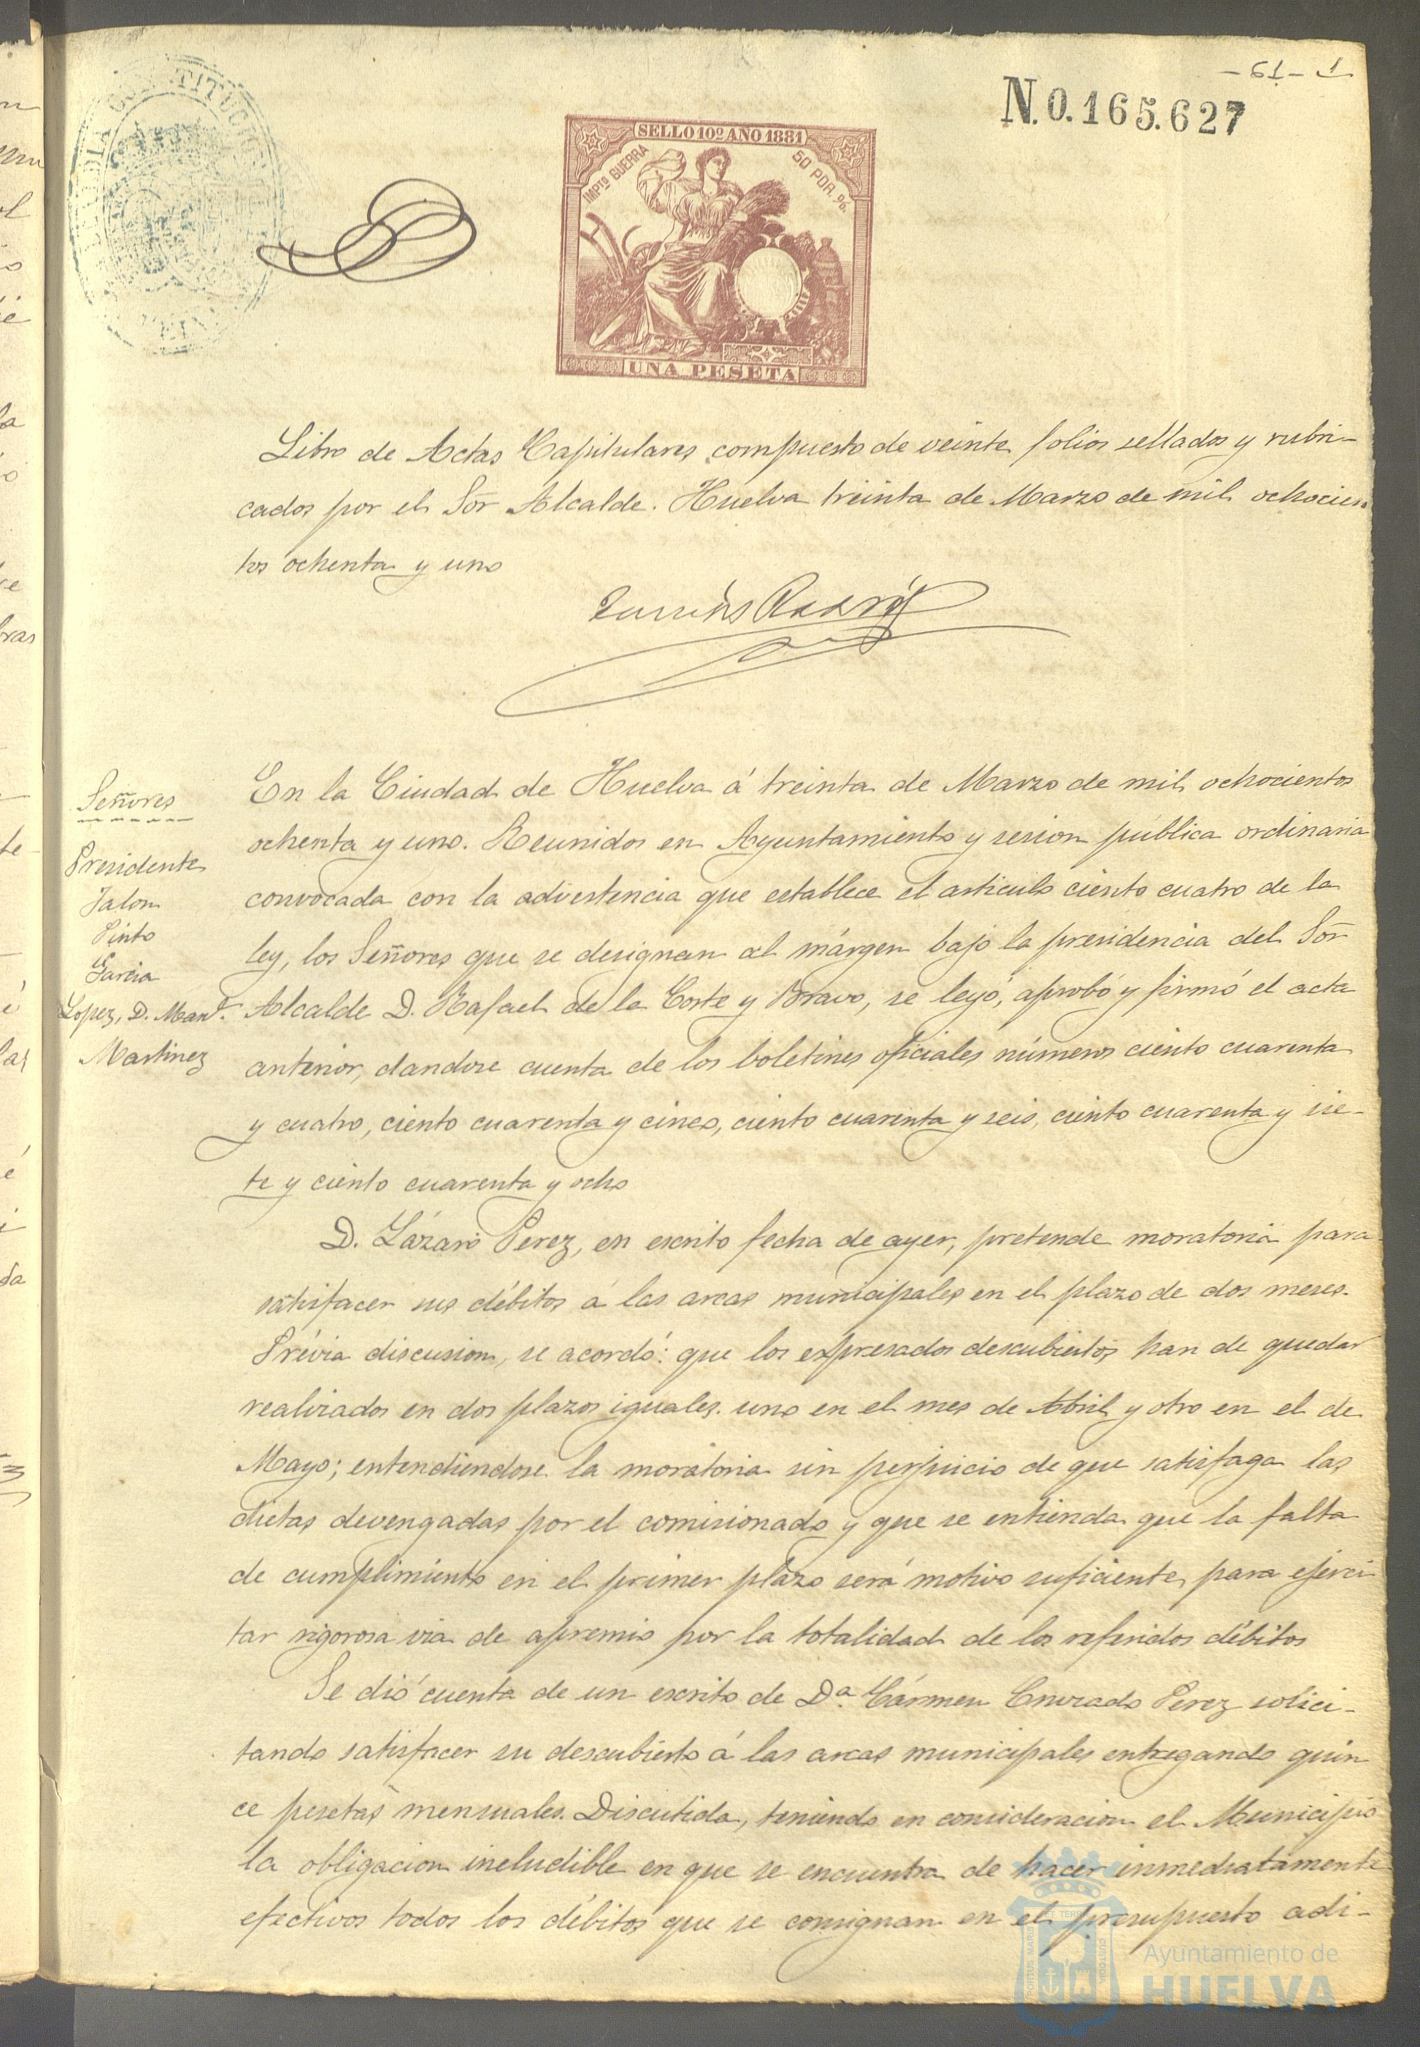 - 61 - 1
N.0.165.627
SELLO 10º AÑO 1881
IMPTO GUERRA
50 POR %.
UNA PESETA
Libro de Actas Capitulares compuesto de veinte folios sellados y rubri-
cados por el Sor Alcalde. Huelva treinta de Marzo de mil ochocien
tos ochenta y uno
Señores
Presidente
Jalon
Pinto
Garcia
Lopez, D. Manl.
Martinez
En la Ciudad de Huelva á treinta de Marzo de mil ochocientos
ochenta y uno. Reunidos en Ayuntamiento y sesion pública ordinaria
convocada con la advertencia que establece el articulo ciento cuatro de la
ley, los Señores que se designan al márgen bajo la presidencia del Sor
Alcalde D. Rafael de la Corte y Bravo, se leyó, aprobó y firmó el acta
anterior, dandose cuenta de los boletines oficiales números ciento cuarenta
y cuatro, ciento cuarenta y cinco, ciento cuarenta y seis, ciento cuarenta y sie-
te y ciento cuarenta y ocho
D. Lázaro Perez, en escrito fecha de ayer, pretende moratoria para
satisfacer sus débitos á las arcas municipales en el plazo de dos meses.
Prévia discusion, se acordó: que los expresados descubiertos han de quedar
realizados en dos plazos iguales. uno en el mes de Abril y otro en el de
Mayo; entendiendose la moratoria sin perjuicio de que satisfaga las
dietas devengadas por el comisionado y que se entienda que la falta
de cumplimiento en el primer plazo será motivo suficiente para ejerci
tar rigorosa via de apremio por la totalidad de los referidos débitos
Se dió cuenta de un escrito de Da. Cármen Perez solici-
tando satisfacer su descubierto á las arcas municipales entregando quin
ce pesetas mensuales. Discutida, teniendo en consideracion el Municipio
la obligacion ineludible en que se encuentra de hacer inmediatamente
efectivos todos los débitos que se consignan en el presupuesto adi-
Ayuntamiento de
HUELVA